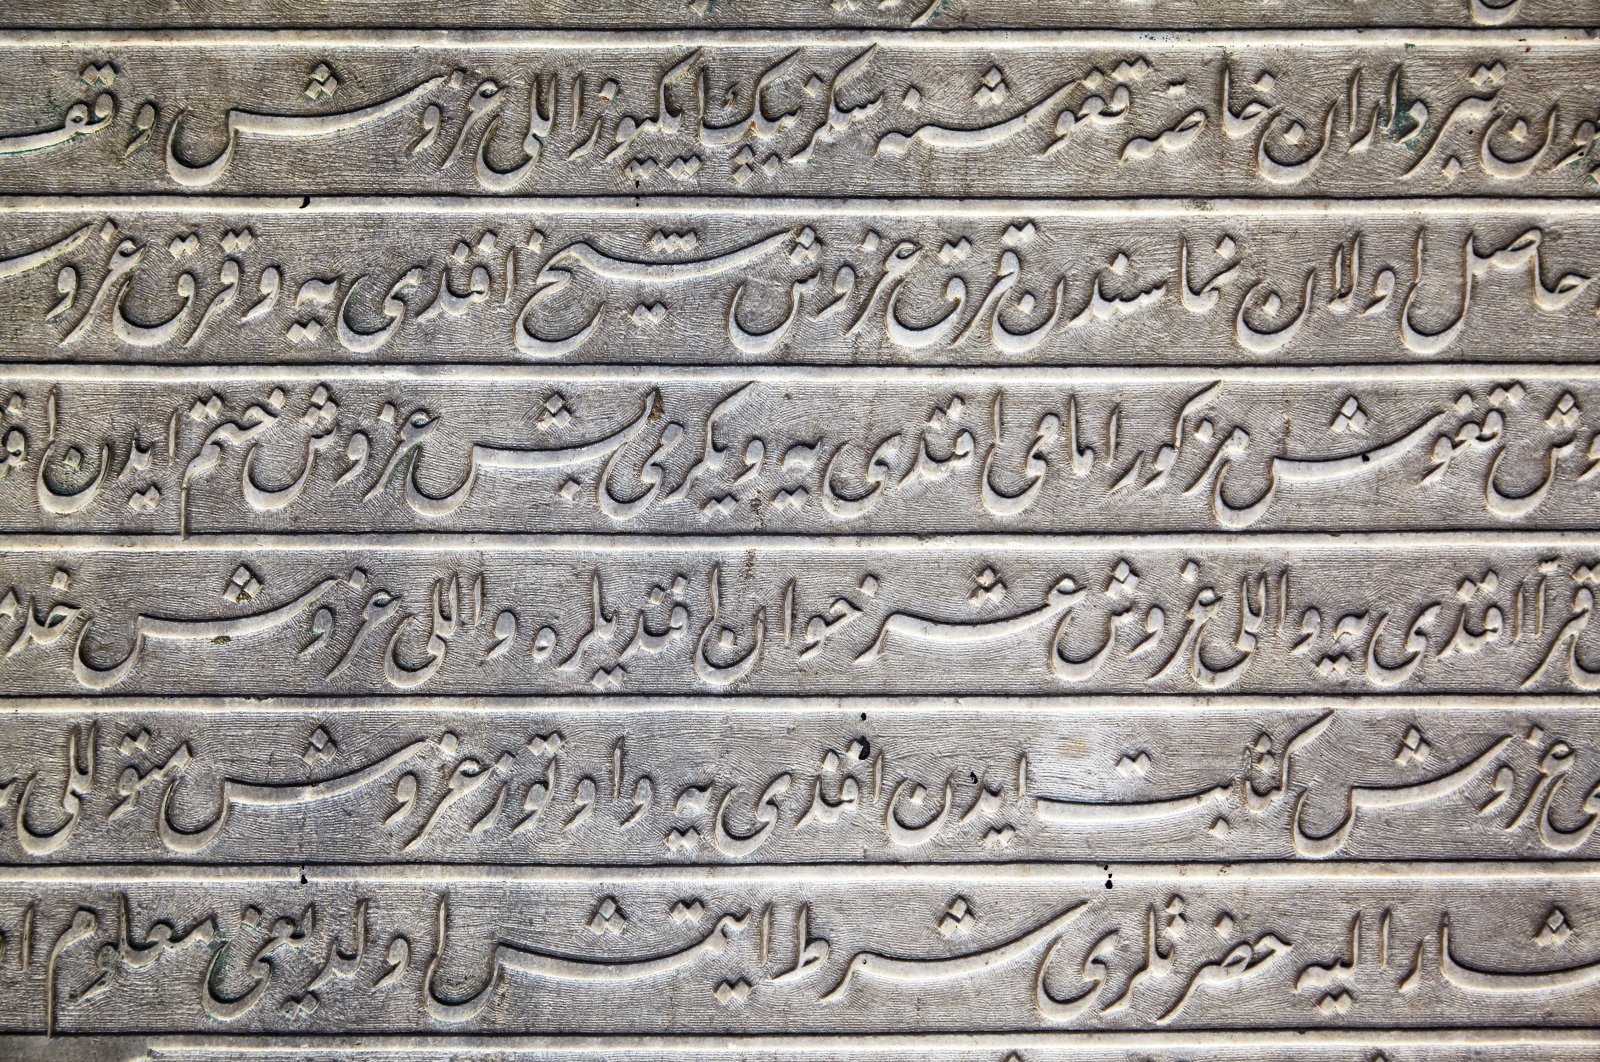 تبرداران خاصه قغوشنه سكز بيك ايكيوز اللي غروش وقف
حاصل اولان نماسندن قرق غروش شيخ افندى يه و قرق غروش
قغوش مزكور امامى افندى يه و يكرمى بش غروش ختم ايدن
افندى يه و اللي غروش عشر خوان افنديلره و اللي غروش
غروش كتابت ايدن افندى يه و اوتوز غروش متوللى
شار اليه حضرتلرى شرط ايتمش اولديغى معلوم